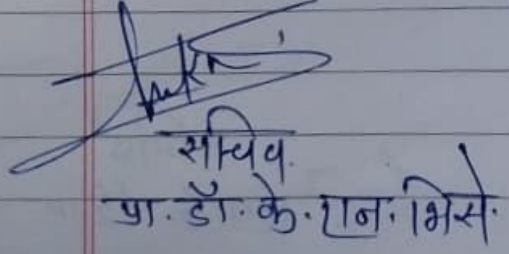 सचिव.
प्रा. डॉ. के. एन. भिसे.